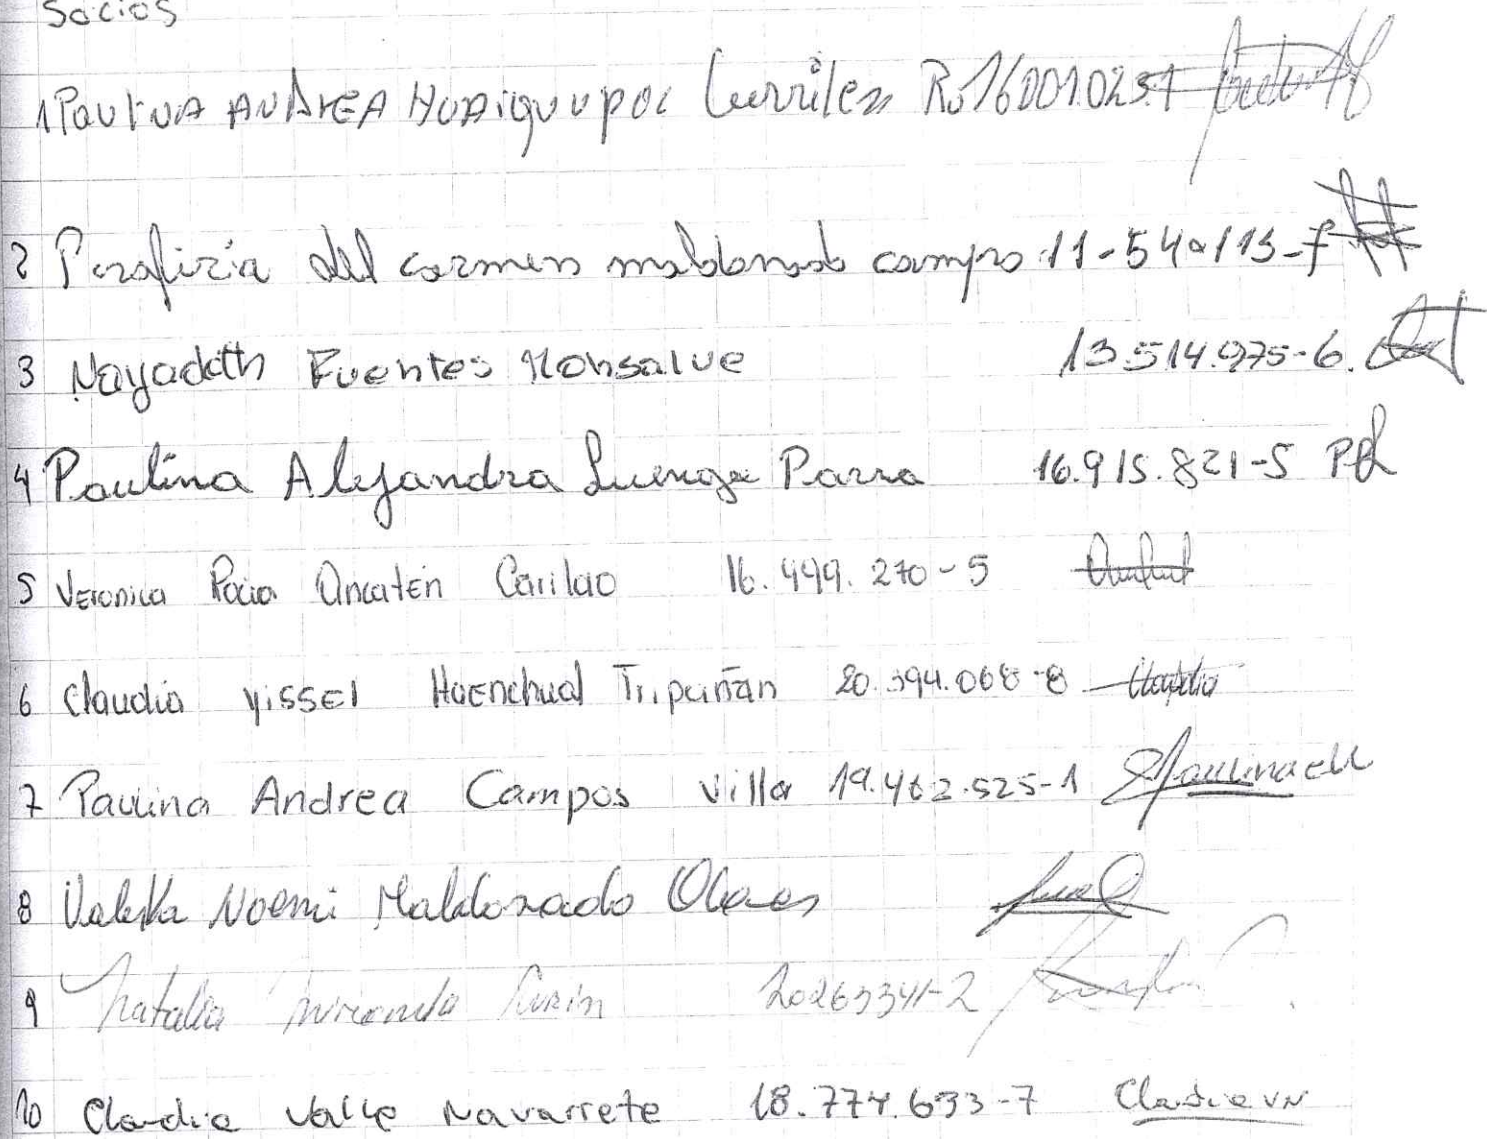 Socios
1 Paulina Andrea Huaiquupoc Curriles R. 16001025-1
2 Porofiria del carmen maldonado campo 11-540113-f
3 Nayadeth Fuentes Monsalve 13.514.975-6.
4 Paulina Alejandra Luengo Parra 16.915.821-5 PL
5 Veronica Rocio Ancatén Carilao 16.449.270-5
6 Claudia Yissel Huenchual Tripañan 20.394.068-8 Claudia
7 Paulina Andrea Campos Villa 19.462.525-1 Paulina CV
8 Valeska Noemi Maldonado
9 Natalia Miranda Curin 20263341-2
10 Claudia Valle Navarrete 18.774.633-7 Claudia VN